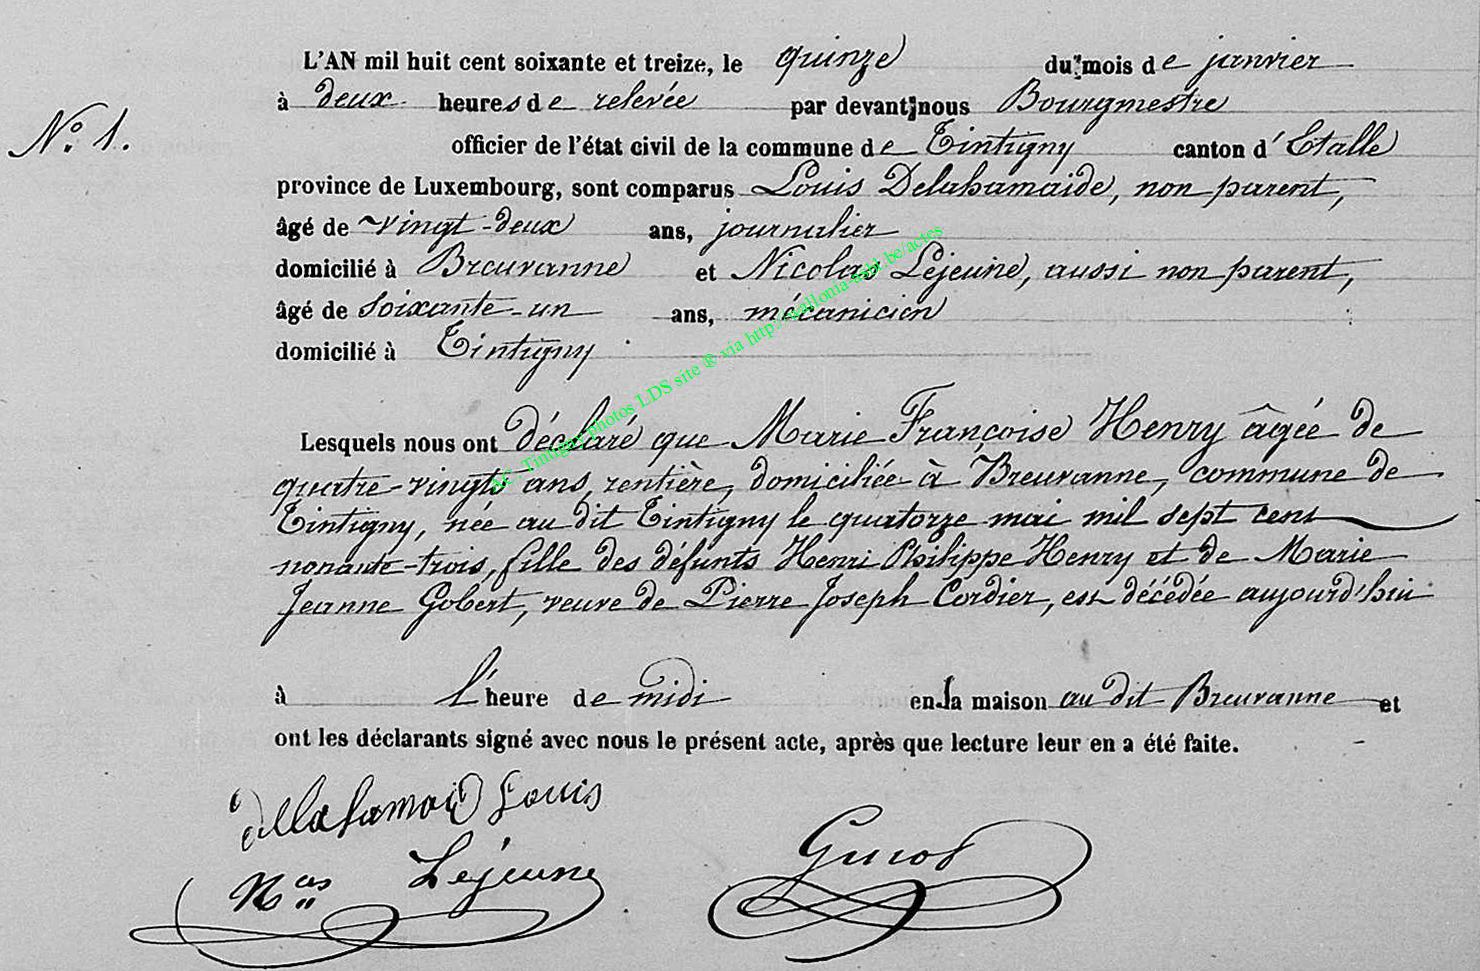 L'AN mil huit cent soixante et treize, le quinze du mois de janvier
à deux heures de relevée par devant nous Bourgmestre
N.° 1.
officier de l'état civil de la commune de Tintigny canton d'Etalle
province de Luxembourg, sont comparus Louis Delahamaide, non parent,
âgé de vingt-deux ans, journalier
domicilié à Breuvanne et Nicolas Lejeune, aussi non parent,
âgé de soixante-un ans, mécanicien
domicilié à Tintigny
Lesquels nous ont déclaré que Marie Françoise Henry âgée de
quatre-vingts ans, rentière, domiciliée à Breuvanne, commune de
Tintigny, née au dit Tintigny le quatorze mai mil sept cent
nonante-trois, fille des défunts Henri Philippe Henry et de Marie
Jeanne Gobert, veuve de Pierre Joseph Cordier, est décédée aujourd'hui
à l'heure de midi en la maison au dit Breuvanne et
ont les déclarants signé avec nous le présent acte, après que lecture leur en a été faite.
Louis
N.as Lejeune
AC Tintigny photos LDS site ® via http://gallonia-asbl.be/actes